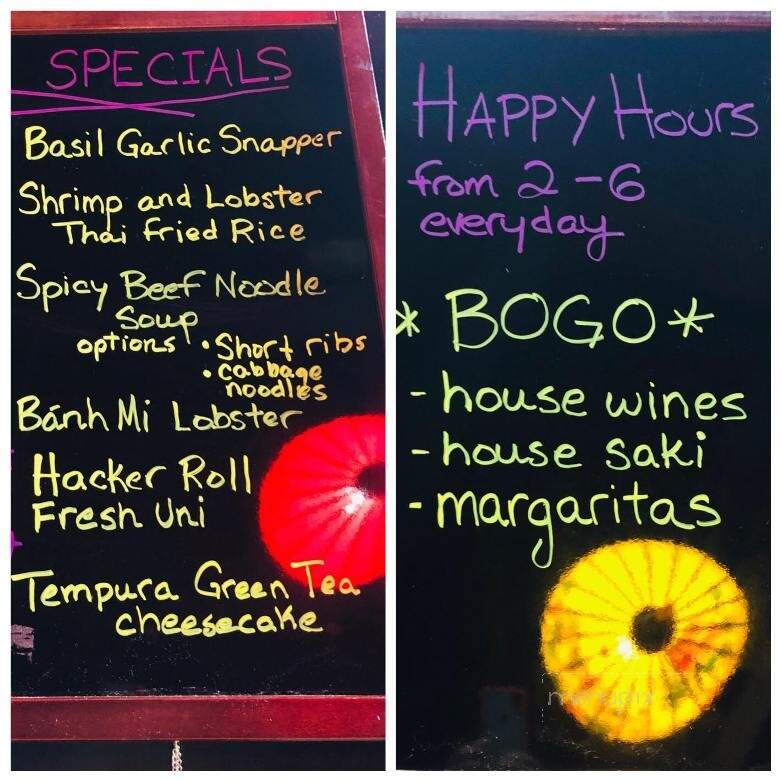 SPECIALS
Basil Garlic Snapper
Shrimp and Lobster
Thai Fried Rice
Spicy Beef Noodle
Soup
options • Short ribs
• cabbage
noodles
Bánh Mi Lobster
Hacker Roll
Fresh Uni
Tempura Green Tea
cheesecake
HAPPY Hours
from 2-6
everyday
* BOGO *
- house wines
- house saki
- margaritas